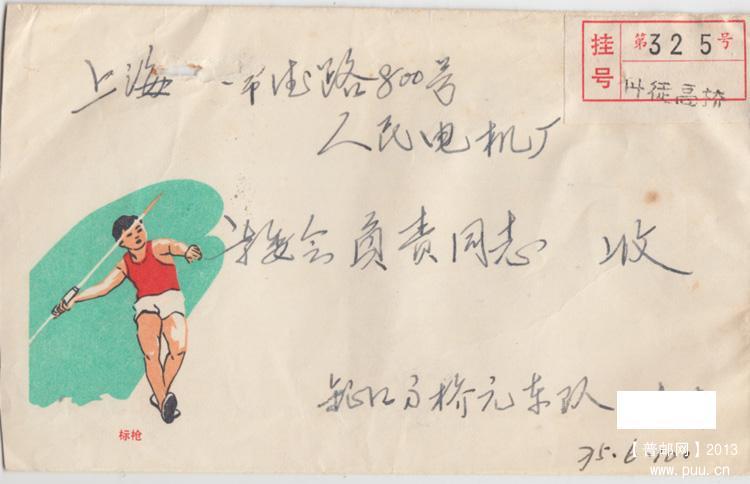 挂号 第325号
丹徒高桥
上海 市路800号
人民电机厂
革委会负责同志 收
镇江高桥元东队
75.6
标枪
【普邮网】2013
www.puu.cn